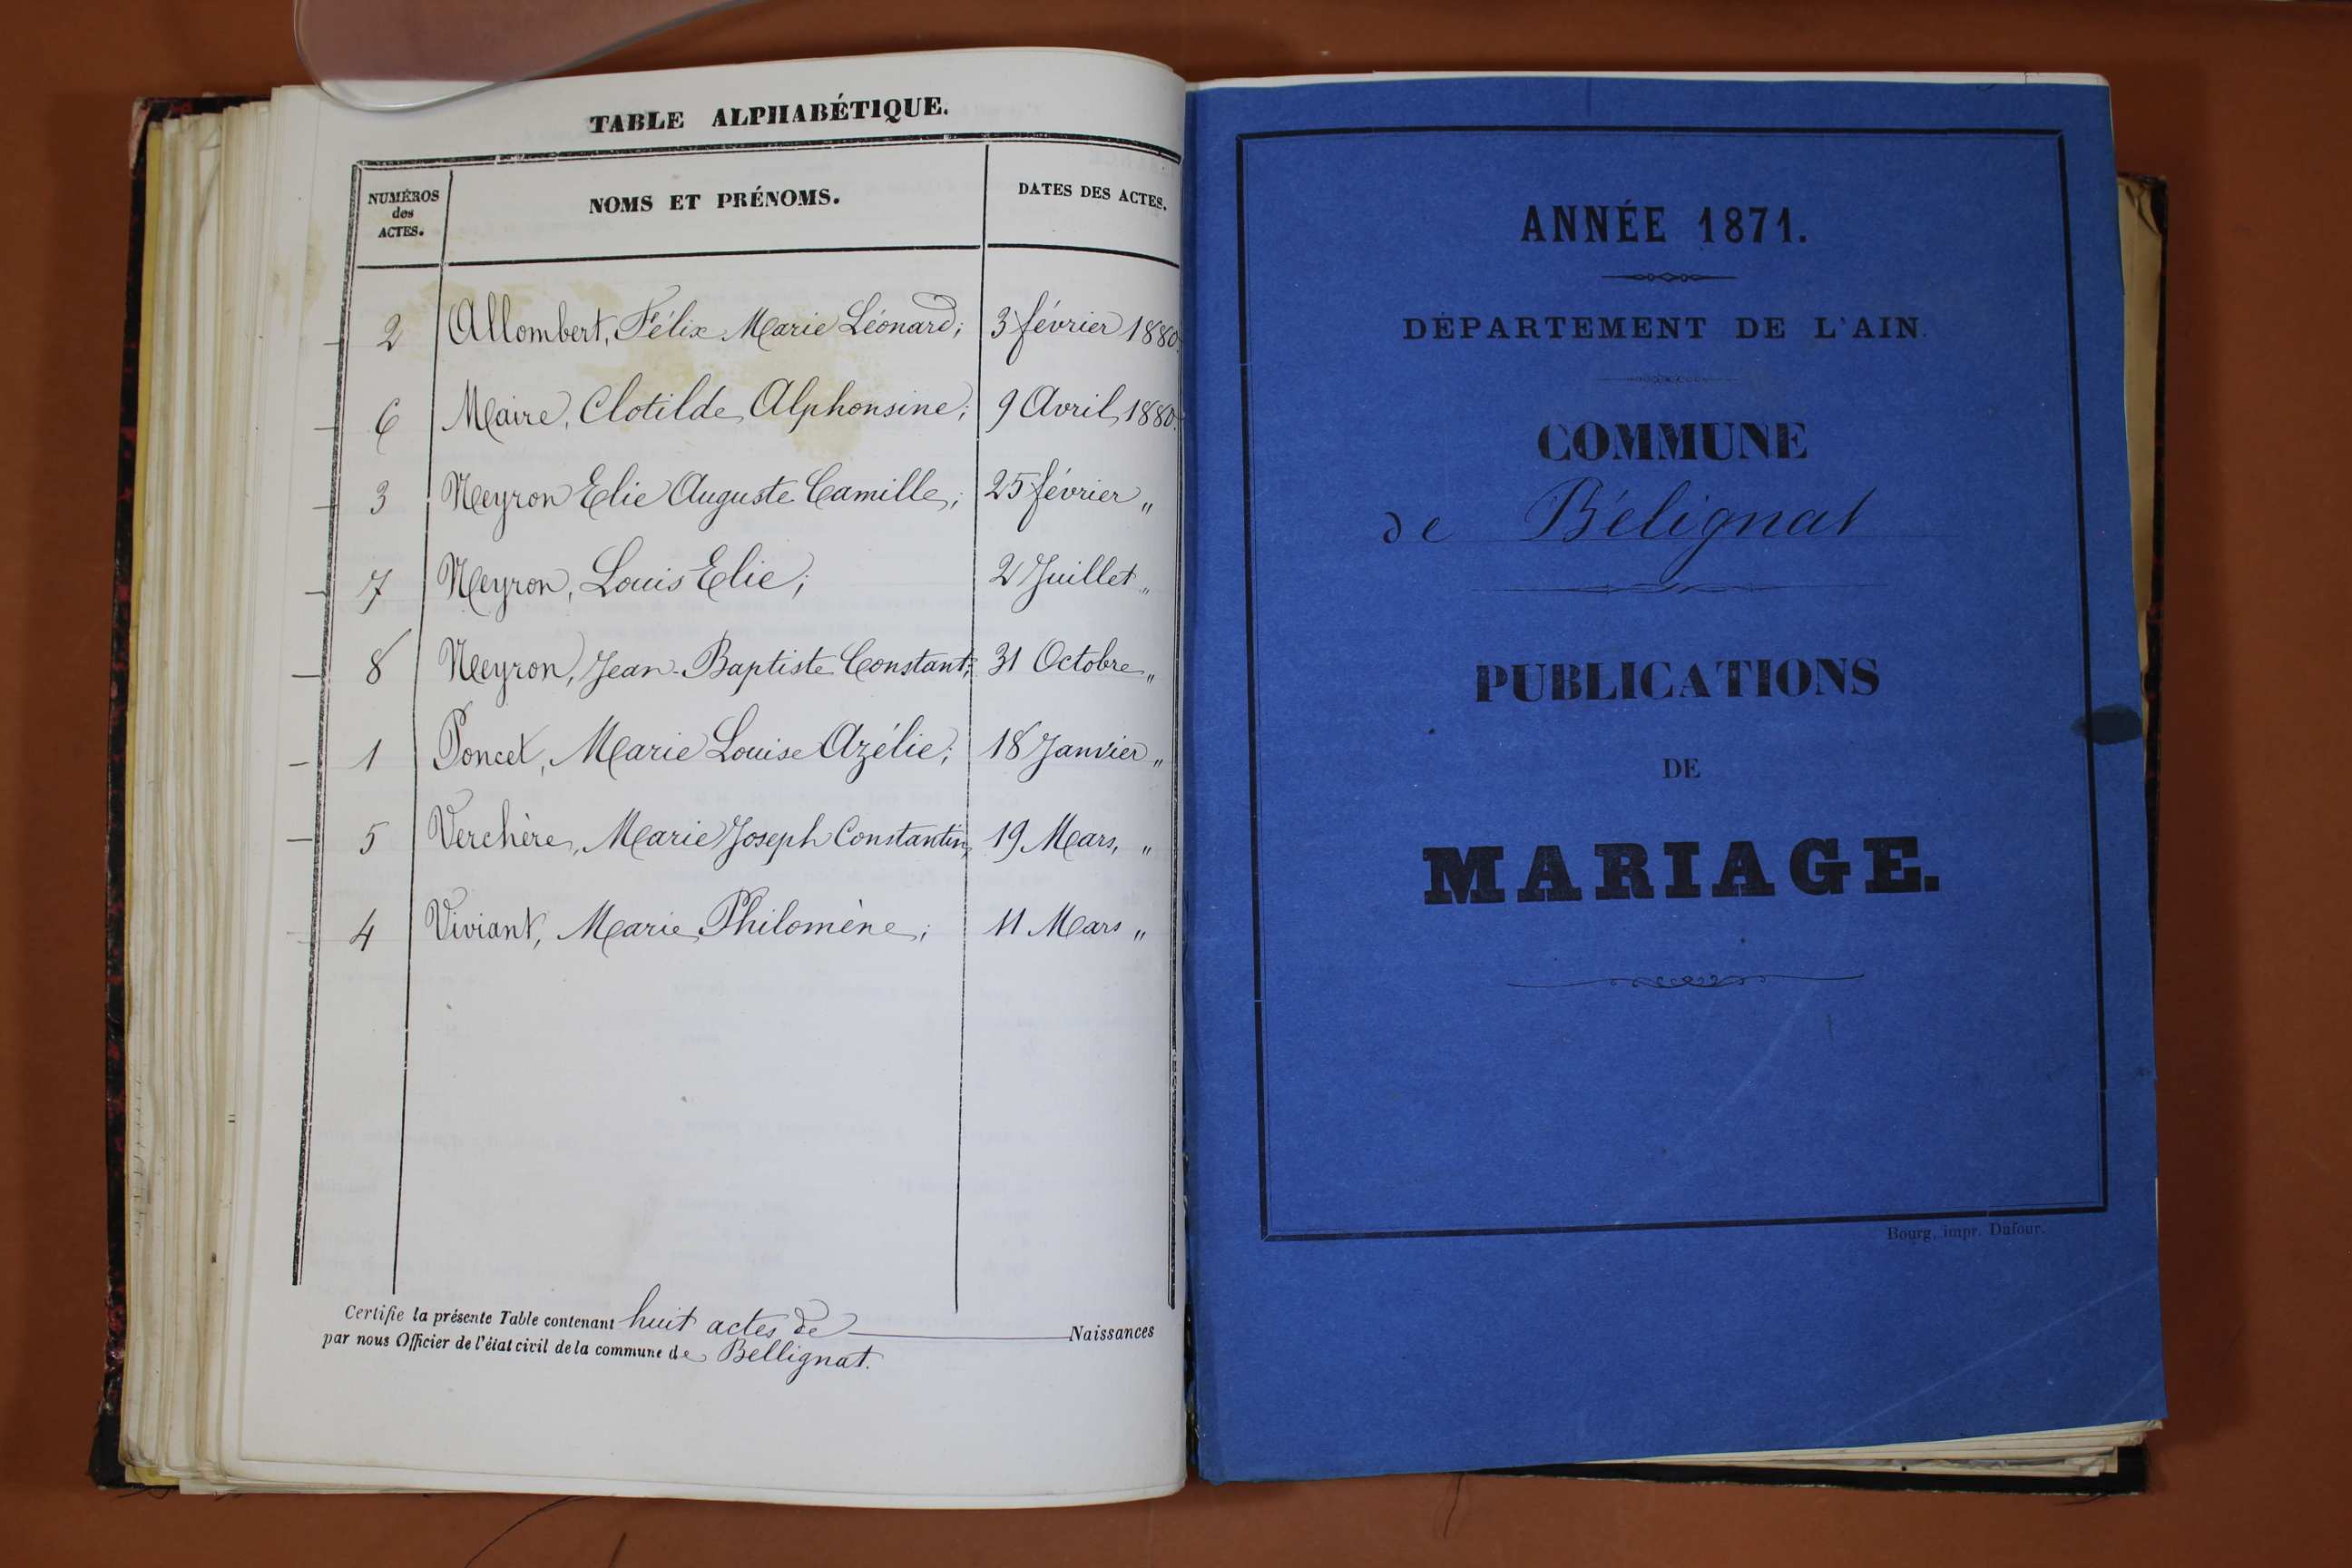 TABLE ALPHABÉTIQUE.
NUMÉROS
des
ACTES.
NOMS ET PRÉNOMS.
DATES DES ACTES.
2 Allombert, Félix Marie Léonard; 3 février 1880.
6 Maire, Clotilde Alphonsine; 9 Avril 1880.
3 Neyron Elie Auguste Camille; 25 février "
7 Neyron, Louis Elie; 2 Juillet "
8 Neyron, Jean-Baptiste Constant; 31 Octobre "
1 Poncet, Marie Louise Azélie; 18 Janvier "
5 Verchère, Marie Joseph Constantin, 19 Mars, "
4 Viviant, Marie Philomène; 11 Mars "
Certifie la présente Table contenant huit actes de Naissances
par nous Officier de l'état civil de la commune de Bellignat.
ANNÉE 1871.
DÉPARTEMENT DE L'AIN.
COMMUNE
de Bélignat
PUBLICATIONS
DE
MARIAGE.
Bourg, impr. Dufour.